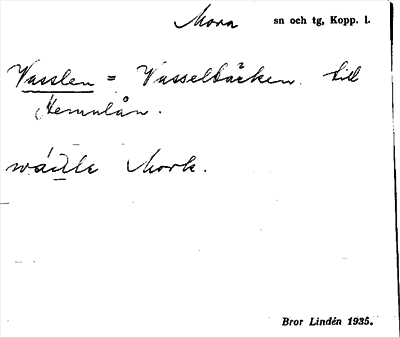 Mora sn och tg, Kopp. l.
Vasslen = Vasselbäcken. till
Hemulån.
Mork.
Bror Lindén 1935.